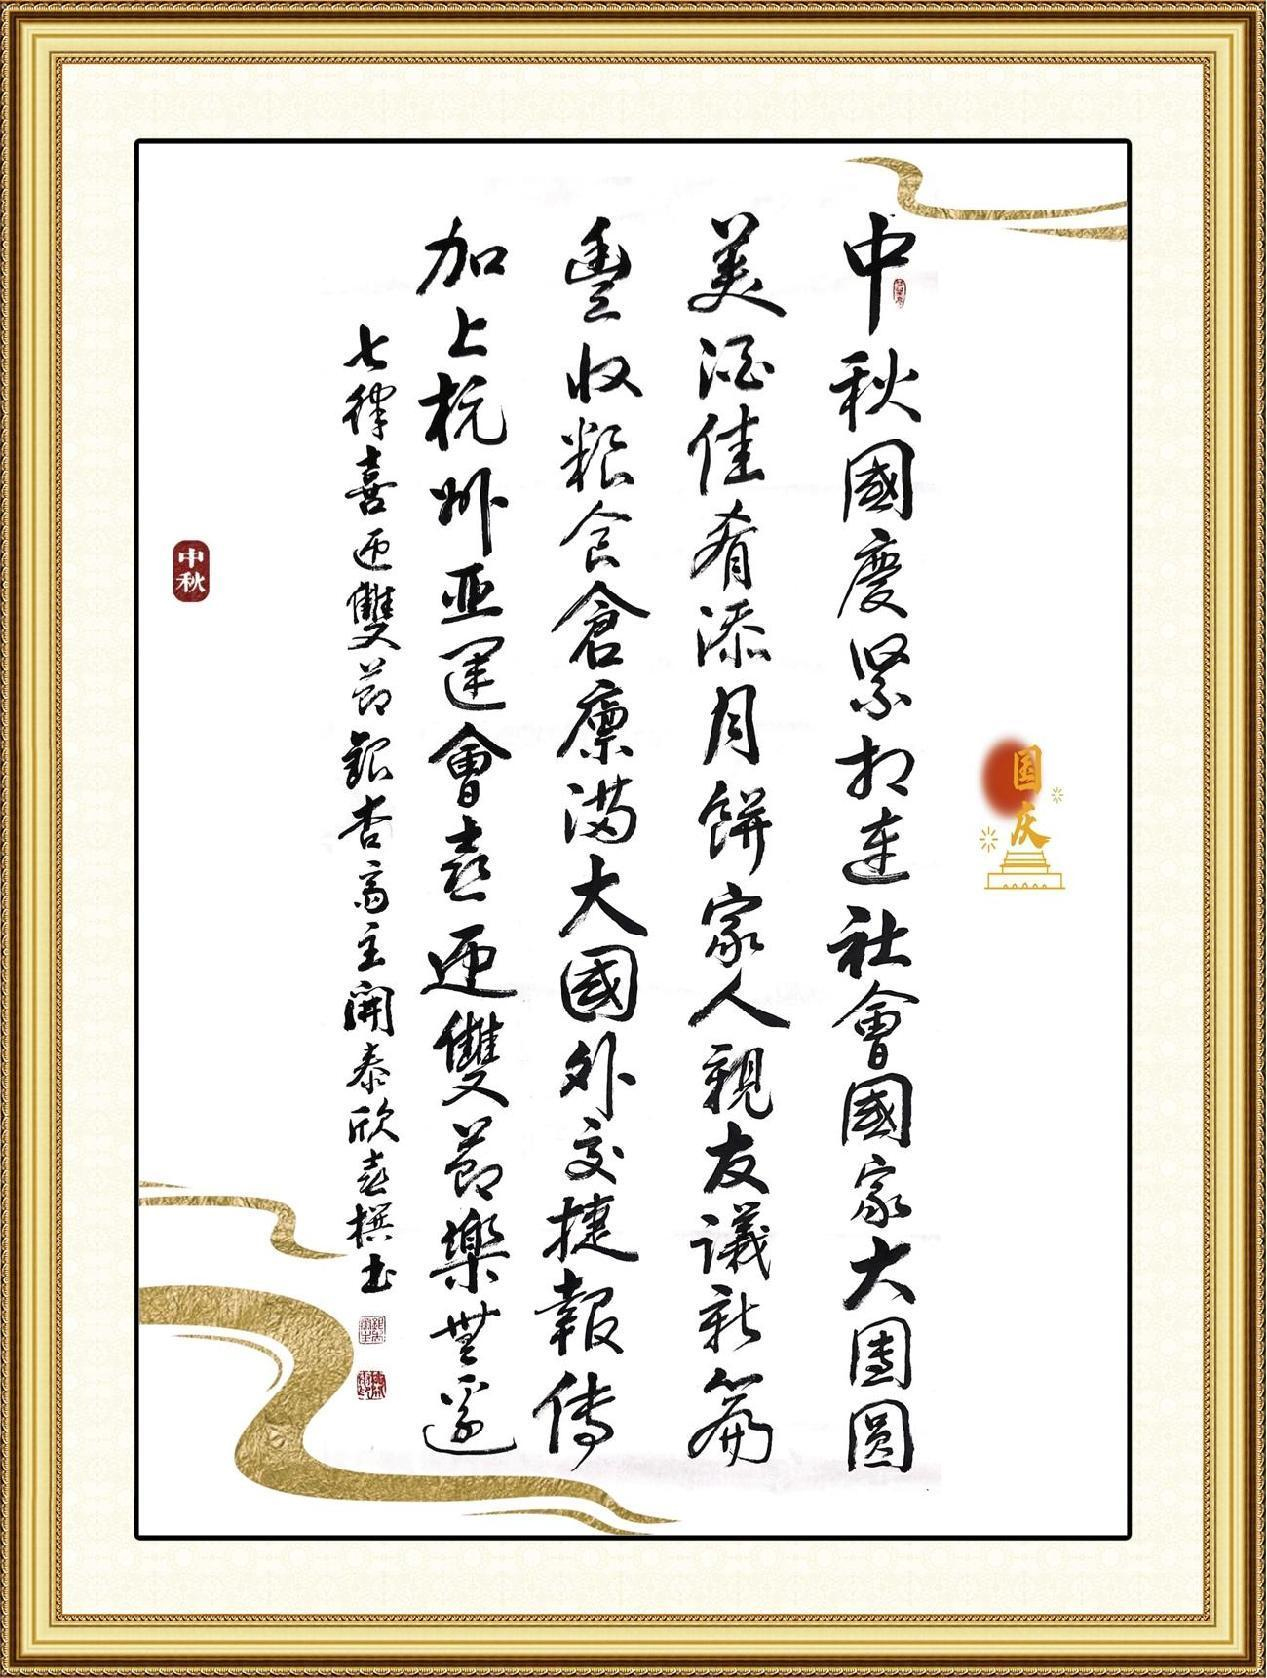 中秋國慶緊扣連社會國家大團圓
美酒佳肴添月餅家人親友議新篇
豐收粮食倉廪满大國外交捷報傳
加上杭州亚運會喜迎雙節樂無邊
七律喜迎雙節銀杏斋主開泰欣喜撰书
中秋
国庆